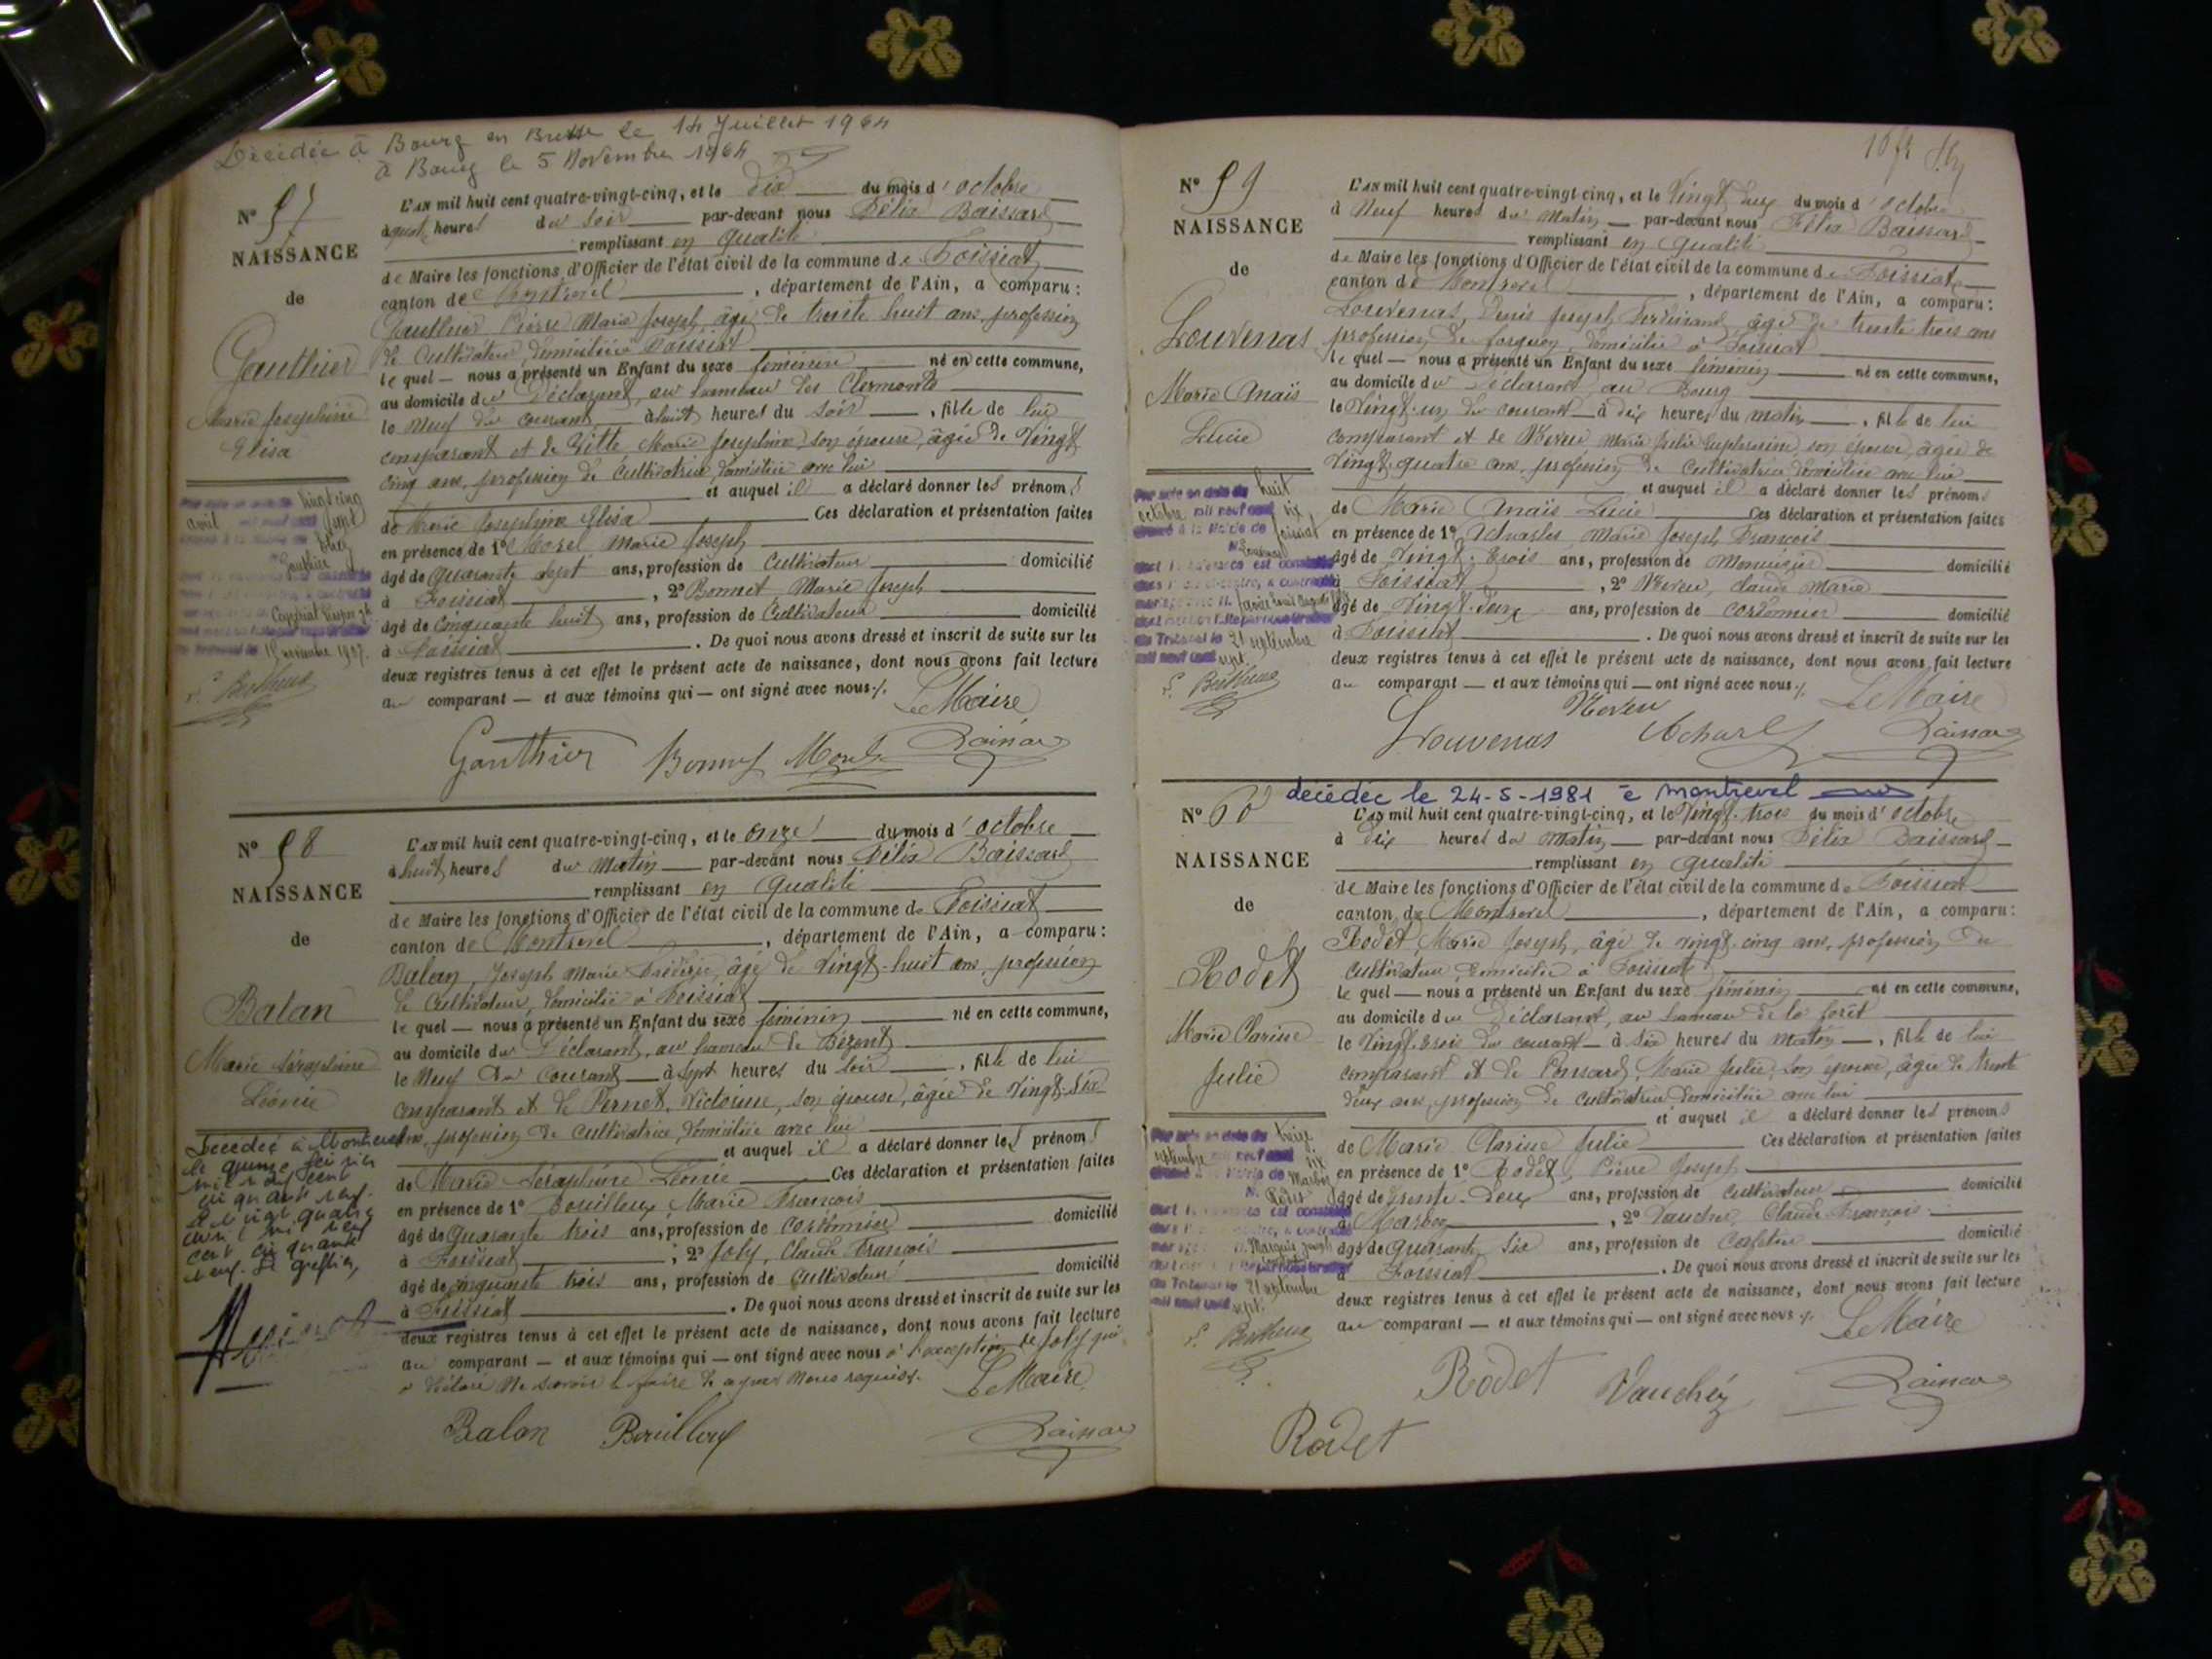 Décédée à Bourg en Bresse le 14 Juillet 1964
à Bourg le 5 Novembre 1964
N° 57
NAISSANCE
de
Gauthier
Marie Joséphine
Elisa
L'an mil huit cent quatre-vingt-cinq, et le dix du mois d'octobre
à quatre heures du soir par-devant nous Félix
remplissant en qualité
de Maire les fonctions d'Officier de l'état civil de la commune de Foissiat
canton de Montrevel, département de l'Ain, a comparu :
Gauthier Pierre Marie Joseph, âgé de trente huit ans, profession
de Cultivateur, domicilié à Foissiat
lequel — nous a présenté un Enfant du sexe féminin né en cette commune,
au domicile du Déclarant, au hameau des Clermonts
le Neuf du courant, à huit heures du soir, fille de lui
comparant et de Marie Joséphine, son épouse, âgée de Vingt
cinq ans, profession de Cultivatrice, domiciliée avec lui
et auquel il a déclaré donner les prénoms
de Marie Joséphine Elisa Ces déclaration et présentation faites
en présence de 1° Morel Marie Joseph
âgé de Quarante sept ans, profession de Cultivateur domicilié
à Foissiat, 2° Bonnet, Marie Joseph
âgé de Cinquante huit ans, profession de Cultivateur domicilié
à Foissiat. De quoi nous avons dressé et inscrit de suite sur les
deux registres tenus à cet effet le présent acte de naissance, dont nous avons fait lecture
au comparant — et aux témoins qui — ont signé avec nous /.
Le Maire
Gauthier Bonnet Morel
vingt cinq
avril
Gauthier
19 novembre 1907.
N° 58
NAISSANCE
de
Balan
Marie Séraphine
Léonie
L'an mil huit cent quatre-vingt-cinq, et le onze du mois d'octobre
à huit heures du Matin par-devant nous Félix
remplissant en qualité
de Maire les fonctions d'Officier de l'état civil de la commune de Foissiat
canton de Montrevel, département de l'Ain, a comparu :
Balan, Joseph Marie Frédéric, âgé de Vingt-huit ans, profession
de Cultivateur, domicilié à Foissiat
lequel — nous a présenté un Enfant du sexe féminin né en cette commune,
au domicile du Déclarant, au hameau de
le Neuf du Courant à sept heures du soir, fille de lui
comparant et de Pernet, Victorine, son épouse, âgée de Vingt-six
ans, profession de Cultivatrice, domiciliée avec lui
et auquel il a déclaré donner les prénoms
de Marie Séraphine Léonie Ces déclaration et présentation faites
en présence de 1° Bouilloux, Marie François
âgé de Quarante trois ans, profession de Cordonnier domicilié
à Foissiat, 2° Joly, Claude François
âgé de cinquante trois ans, profession de Cultivateur domicilié
à Foissiat. De quoi nous avons dressé et inscrit de suite sur les
deux registres tenus à cet effet le présent acte de naissance, dont nous avons fait lecture
au comparant — et aux témoins qui — ont signé avec nous à l'exception de Joly qui
a déclaré ne savoir le faire de ce par nous requis.
Le Maire
Balan Bouilloux
Décédée à Montrevel
le quinze
mil neuf cent
cinquante neuf.
cent cinquante
neuf. Le greffier,
N° 59
NAISSANCE
de
Louvenas
Marie Anaïs
Lucie
L'an mil huit cent quatre-vingt-cinq, et le Vingt deux du mois d'octobre
à Neuf heures du Matin par-devant nous Félix
remplissant en qualité
de Maire les fonctions d'Officier de l'état civil de la commune de Foissiat
canton de Montrevel, département de l'Ain, a comparu :
Louvenas, Denis Joseph Ferdinand, âgé de trente trois ans
profession de, domicilié à Foissiat
lequel — nous a présenté un Enfant du sexe féminin né en cette commune,
au domicile du Déclarant, au Bourg
le Vingt-un du courant à dix heures du matin, fille de lui
comparant et de Neveu Marie Julie Euphrosine, son épouse, âgée de
Vingt-quatre ans, profession de Cultivatrice domiciliée avec lui
et auquel il a déclaré donner les prénoms
de Marie Anaïs Lucie Ces déclaration et présentation faites
en présence de 1° Marie Joseph François
âgé de Vingt-trois ans, profession de Menuisier domicilié
à Foissiat, 2° Neveu, Claude Marie
âgé de Vingt-deux ans, profession de Cordonnier domicilié
à Foissiat. De quoi nous avons dressé et inscrit de suite sur les
deux registres tenus à cet effet le présent acte de naissance, dont nous avons fait lecture
au comparant — et aux témoins qui — ont signé avec nous /.
Le Maire
Louvenas Neveu
huit
octobre mil neuf cent six
Foissiat
Louvenas
21 septembre
N° 60
décédée le 24-5-1981 à Montrevel
NAISSANCE
de
Rodet
Marie Clarisse
Julie
L'an mil huit cent quatre-vingt-cinq, et le Vingt-trois du mois d'octobre
à dix heures du Matin par-devant nous Félix
remplissant en qualité
de Maire les fonctions d'Officier de l'état civil de la commune de Foissiat
canton de Montrevel, département de l'Ain, a comparu :
Rodet, Marie Joseph, âgé de vingt-cinq ans, profession de
Cultivateur, domicilié à Foissiat
lequel — nous a présenté un Enfant du sexe féminin né en cette commune,
au domicile du Déclarant, au hameau de la forêt
le Vingt-trois du courant à six heures du Matin, fille de lui
comparant et de Ponsard, Marie Julie, son épouse, âgée de trente
deux ans, profession de Cultivatrice domiciliée avec lui
et auquel il a déclaré donner les prénoms
de Marie Clarisse Julie Ces déclaration et présentation faites
en présence de 1° Rodet, Pierre Joseph
âgé de trente-deux ans, profession de Cultivateur domicilié
à Marboz, 2° Vaucher, Claude François
âgé de Quarante Six ans, profession de domicilié
à Foissiat. De quoi nous avons dressé et inscrit de suite sur les
deux registres tenus à cet effet le présent acte de naissance, dont nous avons fait lecture
au comparant — et aux témoins qui — ont signé avec nous /.
Le Maire
Rodet Vaucher
Rodet
treize
septembre mil neuf cent six
Marboz
Rodet
21 septembre